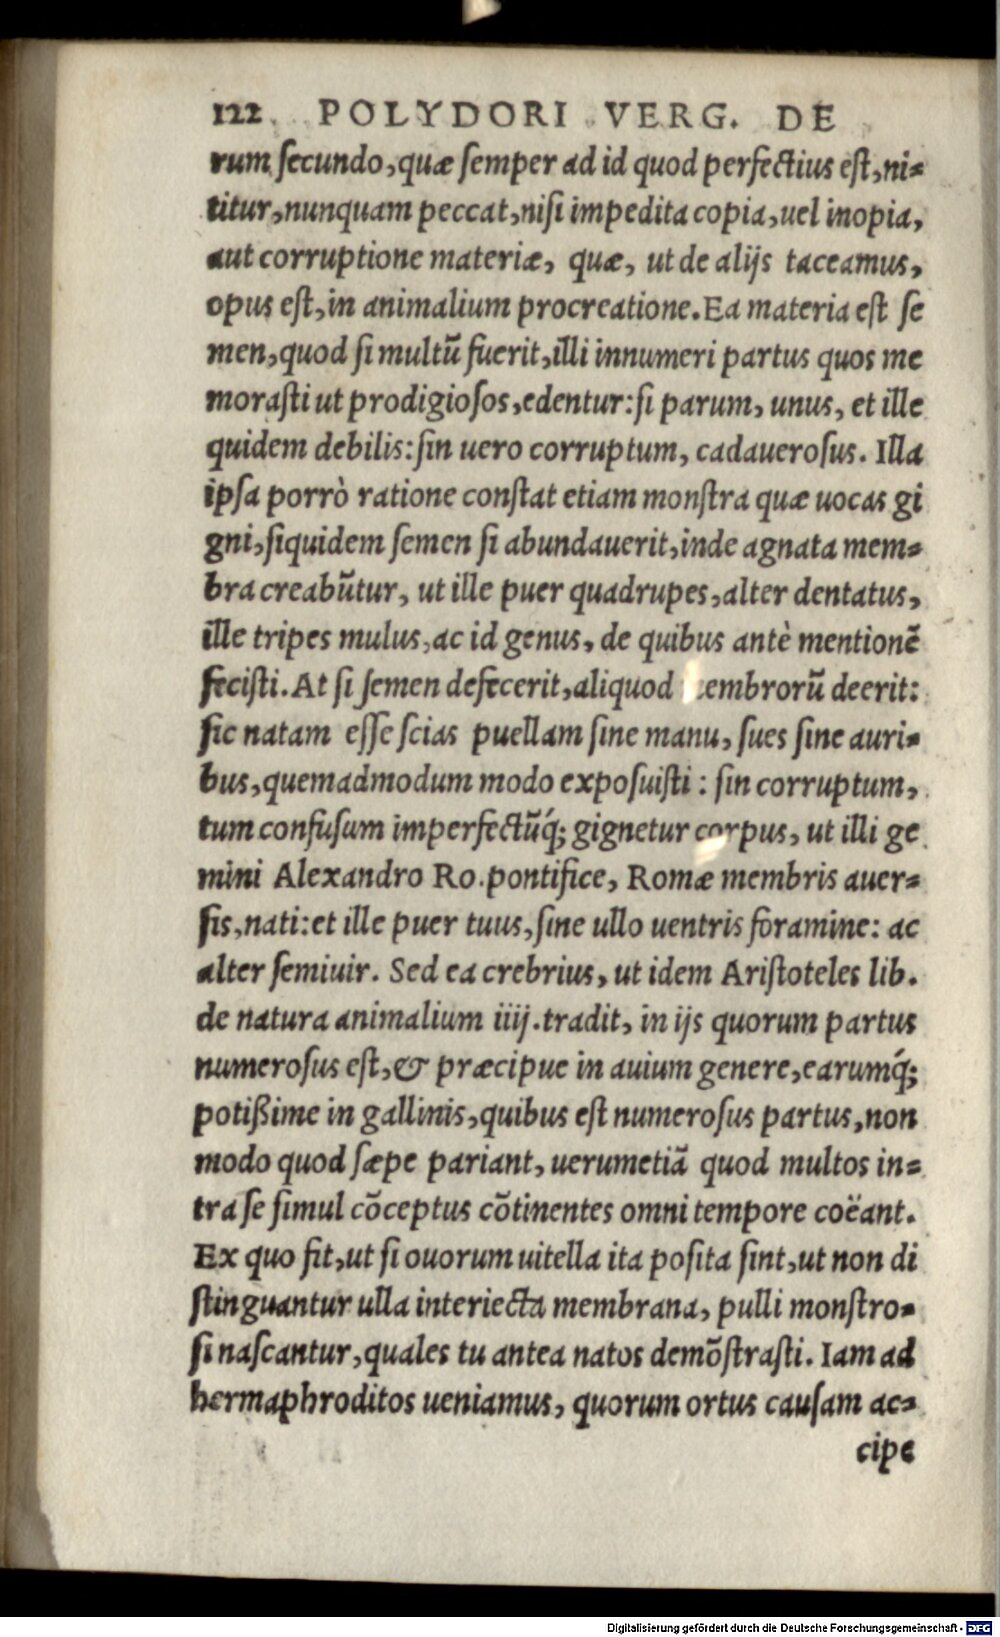 122 POLYDORI VERG. DE
rum ſecundo, quæ ſemper ad id quod perfectius eſt, ni=
titur, nunquam peccat, niſi impedita copia, uel inopia,
aut corruptione materiæ, quæ, ut de alijs taceamus,
opus eſt, in animalium procreatione. Ea materia eſt ſe
men, quod ſi multū fuerit, illi innumeri partus quos me
moraſti ut prodigioſos, edentur: ſi parum, unus, et ille
quidem debilis: ſin uero corruptum, cadaueroſus. Illa
ipſa porrò ratione conſtat etiam monſtra quæ uocas gi
gni, ſiquidem ſemen ſi abundauerit, inde agnata mem=
bra creabūtur, ut ille puer quadrupes, alter dentatus,
ille tripes mulus, ac id genus, de quibus antè mentionē
feciſti. At ſi ſemen defecerit, aliquod embrorū deerit:
ſic natam eſſe ſcias puellam ſine manu, ſues ſine auri=
bus, quemadmodum modo expoſuiſti: ſin corruptum,
tum confuſum imperfectūq́; gignetur corpus, ut illi ge
mini Alexandro Ro. pontifice, Romæ membris auer=
ſis, nati: et ille puer tuus, ſine ullo uentris foramine: ac
alter ſemiuir. Sed ea crebrius, ut idem Ariſtoteles lib.
de natura animalium iiij. tradit, in ijs quorum partus
numeroſus eſt, & præcipue in auium genere, earumq́;
potißime in gallinis, quibus eſt numeroſus partus, non
modo quod ſæpe pariant, uerumetiā quod multos in=
tra ſe ſimul cōceptus cōtinentes omni tempore coëant.
Ex quo fit, ut ſi ouorum uitella ita poſita ſint, ut non di
ſtinguantur ulla interiecta membrana, pulli monſtro=
ſi naſcantur, quales tu antea natos demōſtraſti. Iam ad
hermaphroditos ueniamus, quorum ortus cauſam ac=
cipe
Digitalisierung gefördert durch die Deutsche Forschungsgemeinschaft - DFG